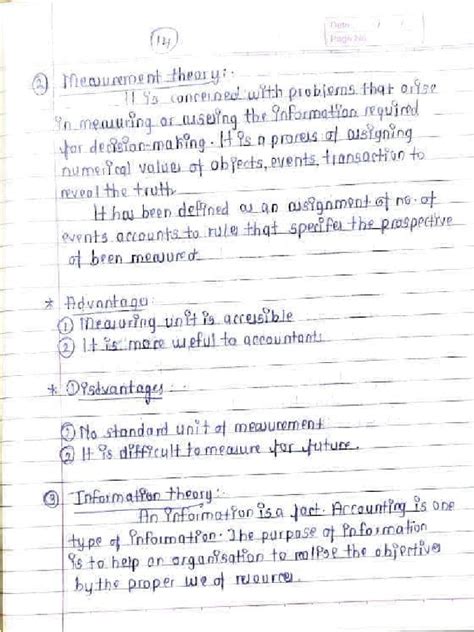 Date / /
Page No.
14
② Measurement theory:-
It is concerned with problems that arise
in measuring or assesing the information required
for decision-making. It is a process of assigning
numerical values of objects, events, transaction to
reveal the truth
It has been defined as an assignment of no. of
events accounts to rules that specifes the prospective
of been measured.
* Advantages:
① Measuring unit is accessible
② It is more useful to accountants
* Disdvantages :-
① No standard unit of measurement
② It is difficult to measure for future.
③ Information theory:-
An information is a fact. Accounting is one
type of information. The purpose of information
is to help an organisation to realise the objectives
by the proper use of resources.